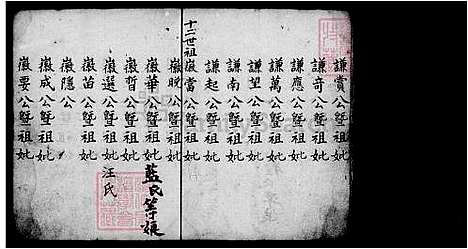 謙賞公暨祖妣
謙奇公暨祖妣
謙應公暨祖妣
謙萬公暨祖妣
謙望公暨祖妣
謙南公暨祖妣
謙起公暨祖妣
十二世祖徽當公暨祖妣
徽晚公暨祖妣
徽華公暨祖妣藍氏等娘
徽晢公暨祖妣
徽選公暨祖妣汪氏
徽苗公暨祖妣
徽隱公
徽成公暨祖妣
徽要公暨祖妣